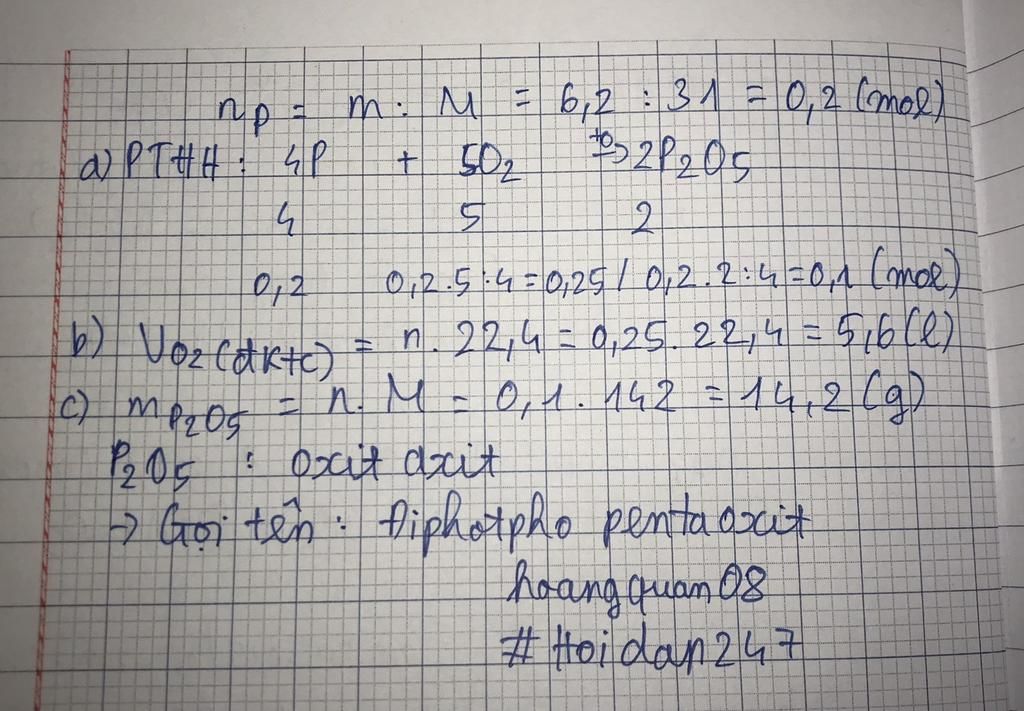 nP = m : M = 6,2 : 31 = 0,2 (mol)
a) PTHH : 4P + 5O2 t0→ 2P2O5
4 5 2
0,2 0,2.5:4=0,25 / 0,2.2:4=0,1 (mol)
b) VO2(đktc) = n. 22,4 = 0,25. 22,4 = 5,6 (l)
c) mP2O5 = n. M = 0,1. 142 = 14,2 (g)
P2O5 : oxit axit
→ Gọi tên : Điphotpho pentaoxit
hoangquan08
# Hoidap247